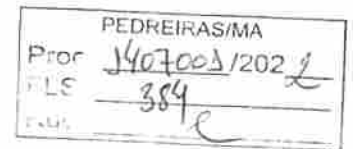 PEDREIRAS/MA
Proc 1407001/2022
FLS 384